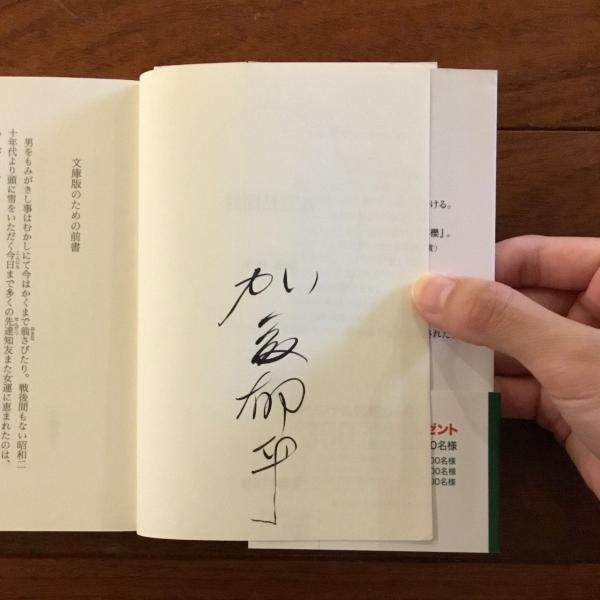 ける。
欄』。
賞)
された。
ゼント
0名様
00名様
00名様
00名様
加藤郁乎
文庫版のための前書
男をもみがきし事はむかしにて今はかくまで翁さびたり。戦後間もない昭和二
十年代より頭に雪をいただく今日まで多くの先達知友また女運に恵まれたのは、